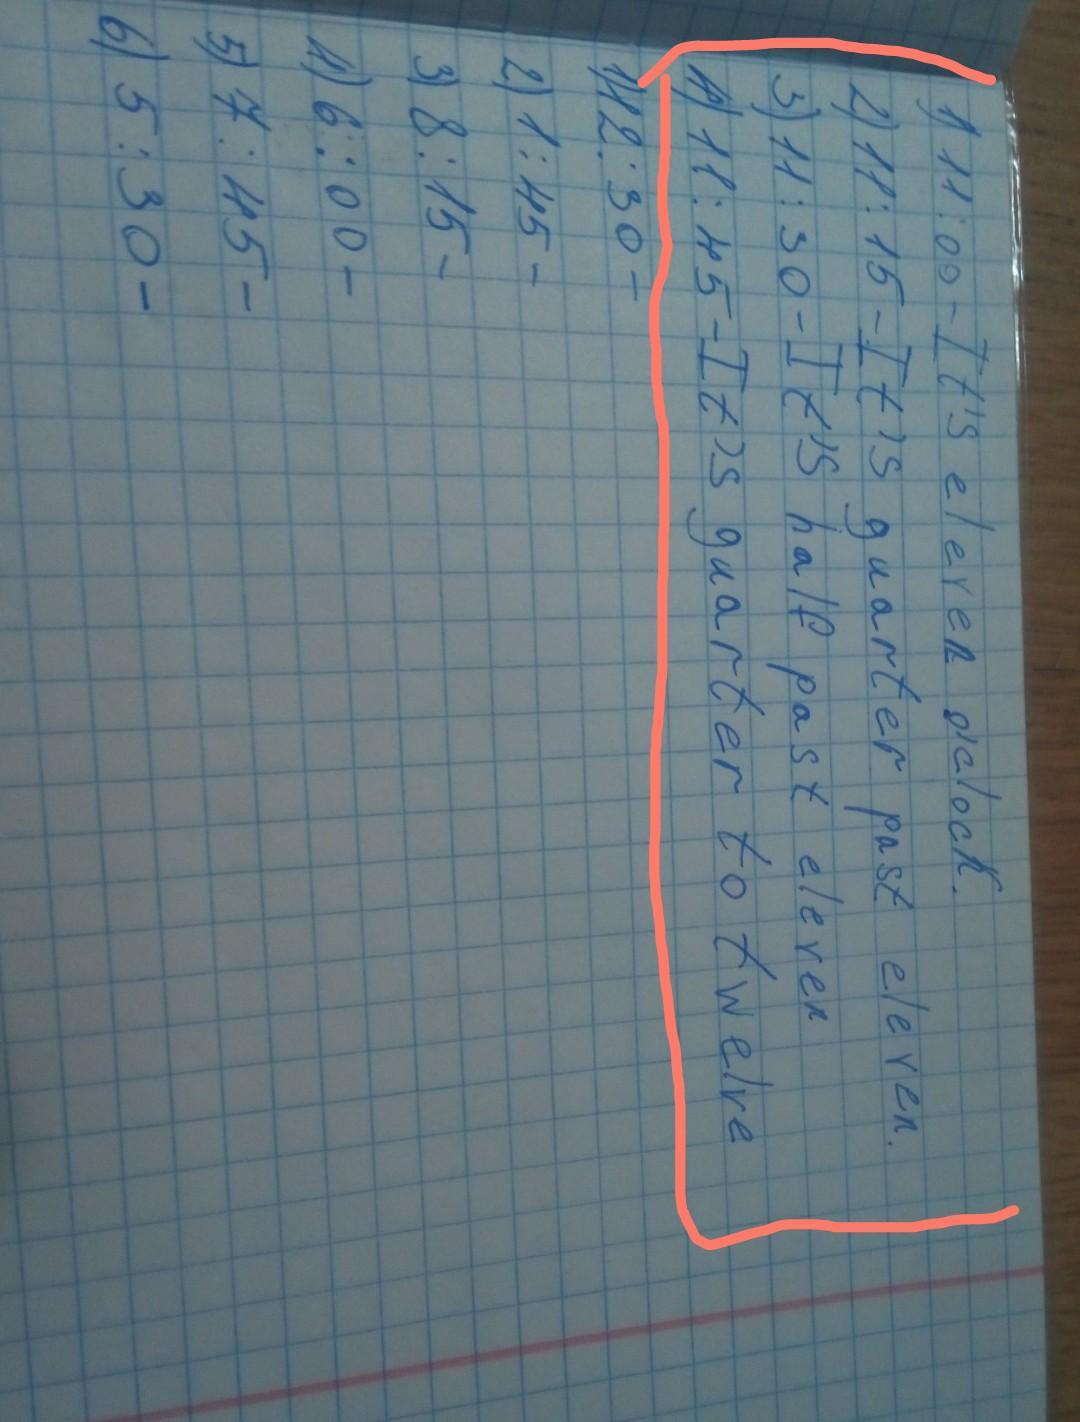 1) 11:00-It's eleven o'clock.
2) 11:15-It's quarter past eleven.
3) 11:30-It's half past eleven
4) 11:45-It's quarter to twelve
1) 12:30-
2) 1:45-
3) 8:15-
4) 6:00-
5) 7:45-
6) 5:30-